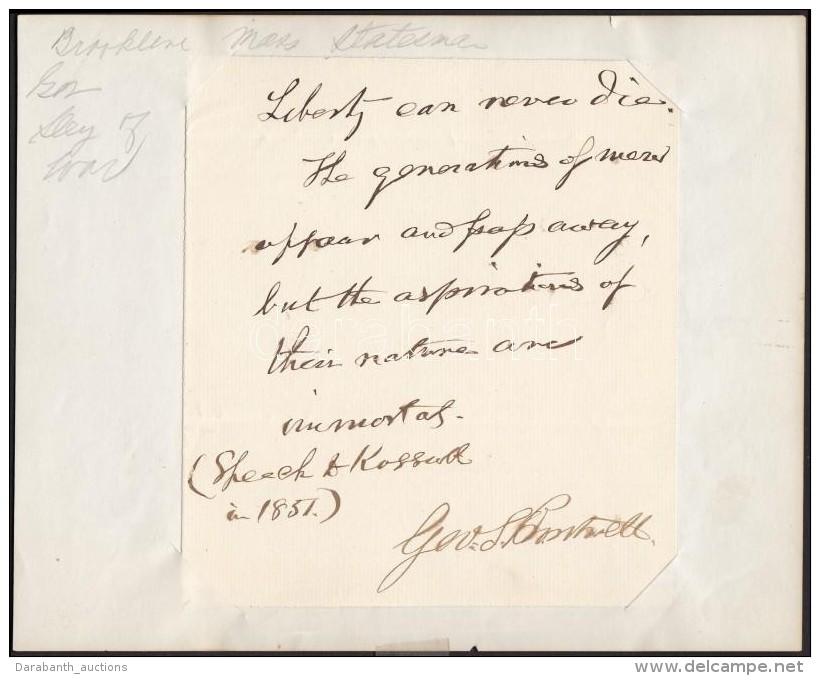 Brookline Mass Statesman
Gov
Secy of
War
Liberty can never die.
The generations of men
appear and pass away,
but the aspirations of
their nature are
immortal.
(Speech to Kossuth
in 1851.)
Geo. S. Boutwell.
darabanth
Darabanth_auctions
www.delcampe.net